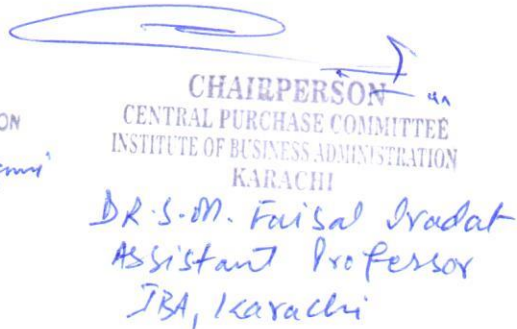 CHAIRPERSON
CENTRAL PURCHASE COMMITTEE
INSTITUTE OF BUSINESS ADMINISTRATION
KARACHI
ON
DR. S. M. Faisal Iradat
Assistant Professor
IBA, Karachi